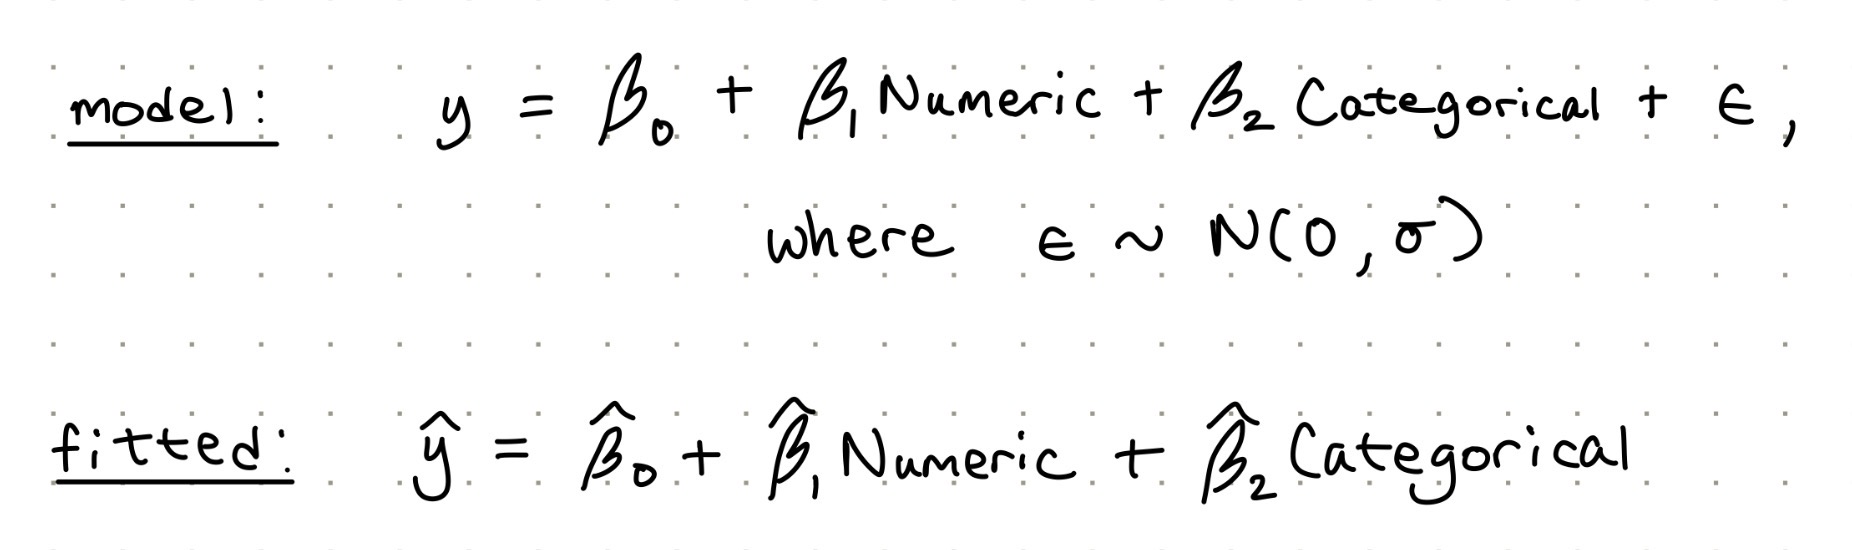 model: y = β₀ + β₁ Numeric + β₂ Categorical + ϵ,
where ϵ ~ N(0, σ)
fitted: ŷ = β̂₀ + β̂₁ Numeric + β̂₂ Categorical